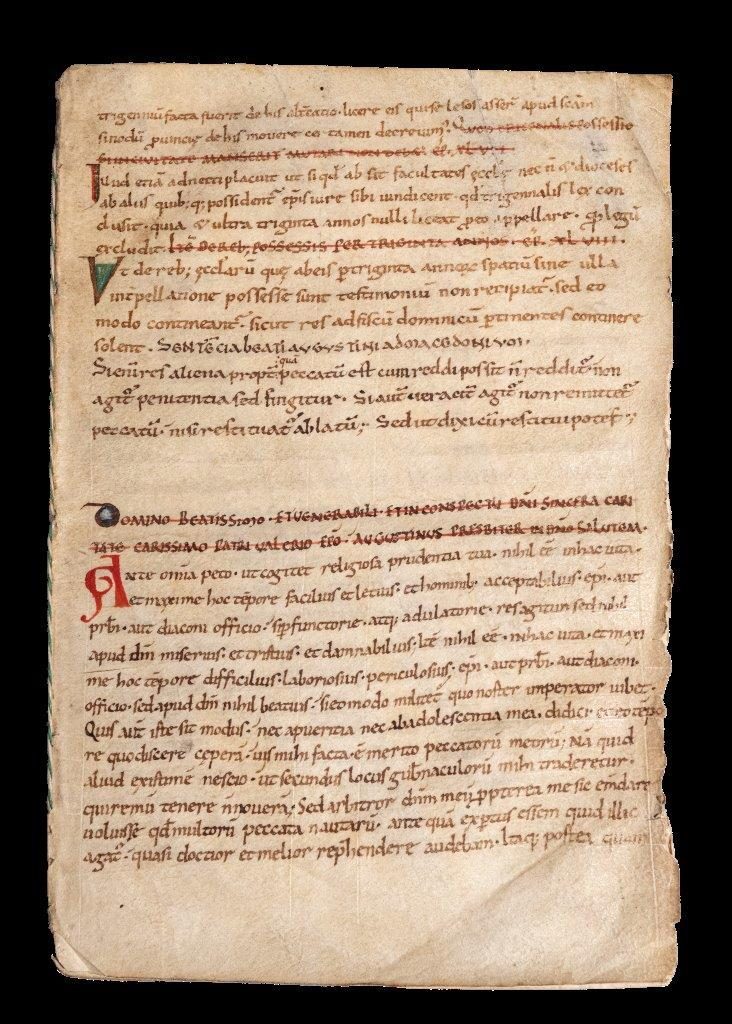 trigenniu facta fuerit de his altercatio. licere eis qui se lesos asser apud scam
sinodu puincie de his movere ea tamen decrevim.
Illud etia adnecti placuit ut si qd ab sit facultates eccles nec n & dioceses
ab aliis quib;q; possident epis iure sibi vindicent. qd trigennalis lex con
clusit. quia & ultra triginta annos nulli liceat appellare. legu
excludit. Ite de reb; possessis per triginta annos. er. XL VIII.
Ut de reb; ecclaru que ab eis p triginta annor spatiu sine ulla
interpellatione possesse sunt testimoniu non recipiat. sed eo
modo contineant. sicut res ad fiscu dominicu ptinentes continere
solent. Sententia beati augustini ad macedoniu.
Si eni res aliena propt qua peccatu est cum reddi possit n reddit. non
agit penitentia sed fingitur. Si aut veracit agit non remittet
peccatu. nisi restituat ablatu; Sed ut dixi cu restitui potest;
Domino beatissimo. et venerabili. et in conspectu dni sincera cari
tate carissimo patri valerio epo. augustinus presbiter in dno salutem.
Ante omia peto. ut cogitet religiosa prudentia tua. nihil ee in hac vita.
et maxime hoc tepore facilius et letius. et hominib; acceptabilius. epi. aut
prbi. aut diaconi officio. si pfunctorie. atq; adulatorie. res agatur. sed nihil
apud dm miserius. et tristius. et damnabilius. Ite nihil ee. in hac vita. et maxi
me hoc tepore difficilius. laboriosius. periculosius. epi. aut prbi. aut diaconi.
officio. sed apud dm nihil beatius. si eo modo militet quo noster imperator iubet.
Quis aut iste sit modus. nec a pueritia nec ab adolescentia mea. didici et eo tepo
re quo discere cepera. vis mihi facta. e merito peccatoru meoru; Na quid
aliud existime nescio. ut secundus locus gubnaculoru mihi traderetur.
qui remu tenere n novera; Sed arbitror dnm meu ppterea me sic emdare
voluisse qd multoru peccata nautaru. ante qua expertus essem quid illic
agat. quasi doctior et melior rephendere audebam. Itaq; postea quam